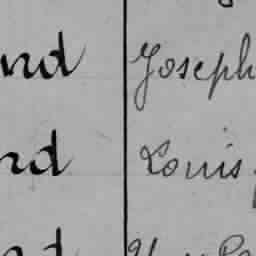 nd Joseph
nd Louis
nd